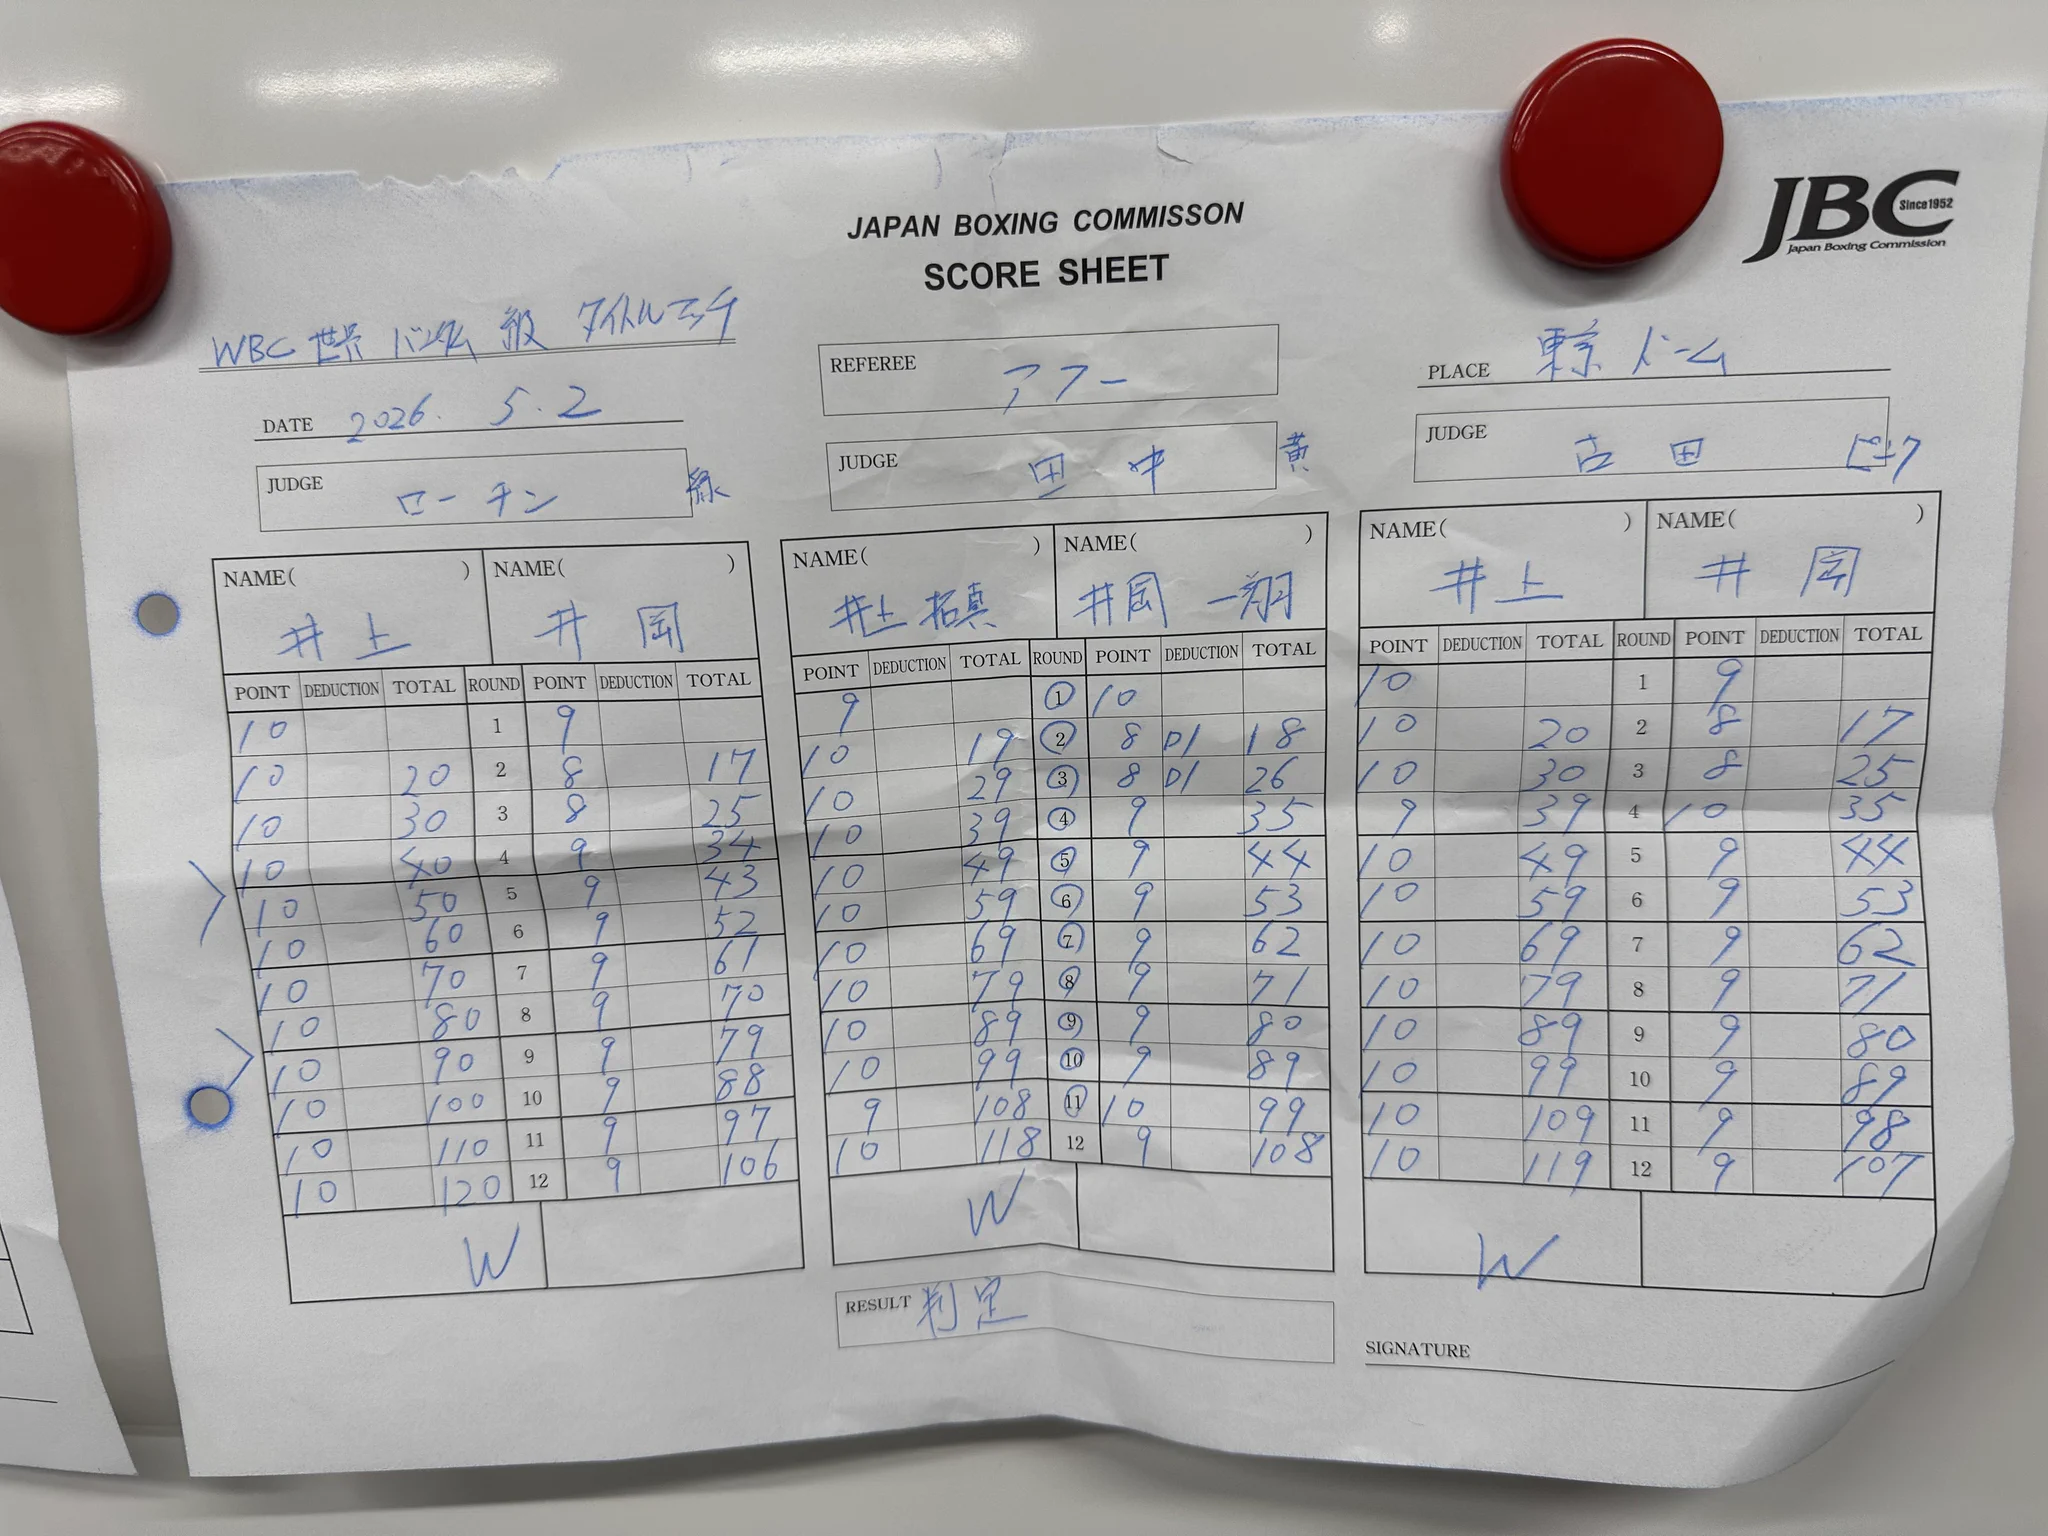 JAPAN BOXING COMMISSON
SCORE SHEET
JBC Since1952
Japan Boxing Commission
WBC 世界 バンタム 級 タイトルマッチ
DATE 2026. 5. 2
REFEREE アフー
PLACE 東京ドーム
JUDGE ローチン 緑
JUDGE 田中 黄
JUDGE 古田 ピンク
NAME( ) NAME( ) NAME( ) NAME( ) NAME( ) NAME( )
井上 井岡 井上拓真 井岡一翔 井上 井岡
POINT DEDUCTION TOTAL ROUND POINT DEDUCTION TOTAL POINT DEDUCTION TOTAL ROUND POINT DEDUCTION TOTAL POINT DEDUCTION TOTAL ROUND POINT DEDUCTION TOTAL
10 1 9 9 1 10 10 1 9
10 20 2 8 17 10 19 2 8 D1 18 10 20 2 8 17
10 30 3 8 25 10 29 3 8 D1 26 10 30 3 8 25
10 40 4 9 34 10 39 4 9 35 9 39 4 10 35
10 50 5 9 43 10 49 5 9 44 10 49 5 9 44
10 60 6 9 52 10 59 6 9 53 10 59 6 9 53
10 70 7 9 61 10 69 7 9 62 10 69 7 9 62
10 80 8 9 70 10 79 8 9 71 10 79 8 9 71
10 90 9 9 79 10 89 9 9 80 10 89 9 9 80
10 100 10 9 88 10 99 10 9 89 10 99 10 9 89
10 110 11 9 97 9 108 11 10 99 10 109 11 9 98
10 120 12 9 106 10 118 12 9 108 10 119 12 9 107
W W W
RESULT 判定
SIGNATURE